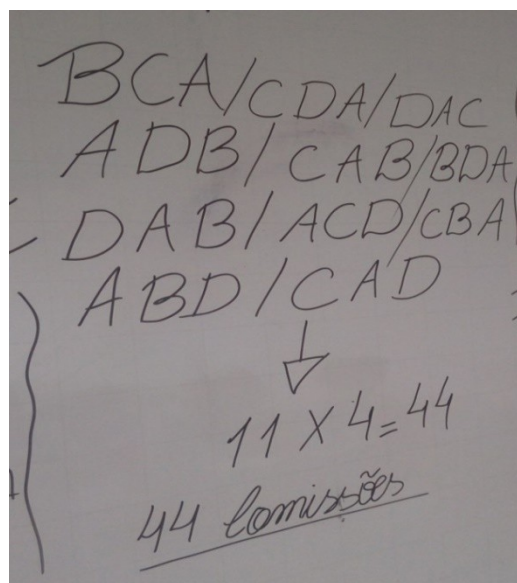 BCA/CDA/DAC
ADB/CAB/BDA
DAB/ACD/CBA
ABD/CAD
11 X 4=44
44 Comissões